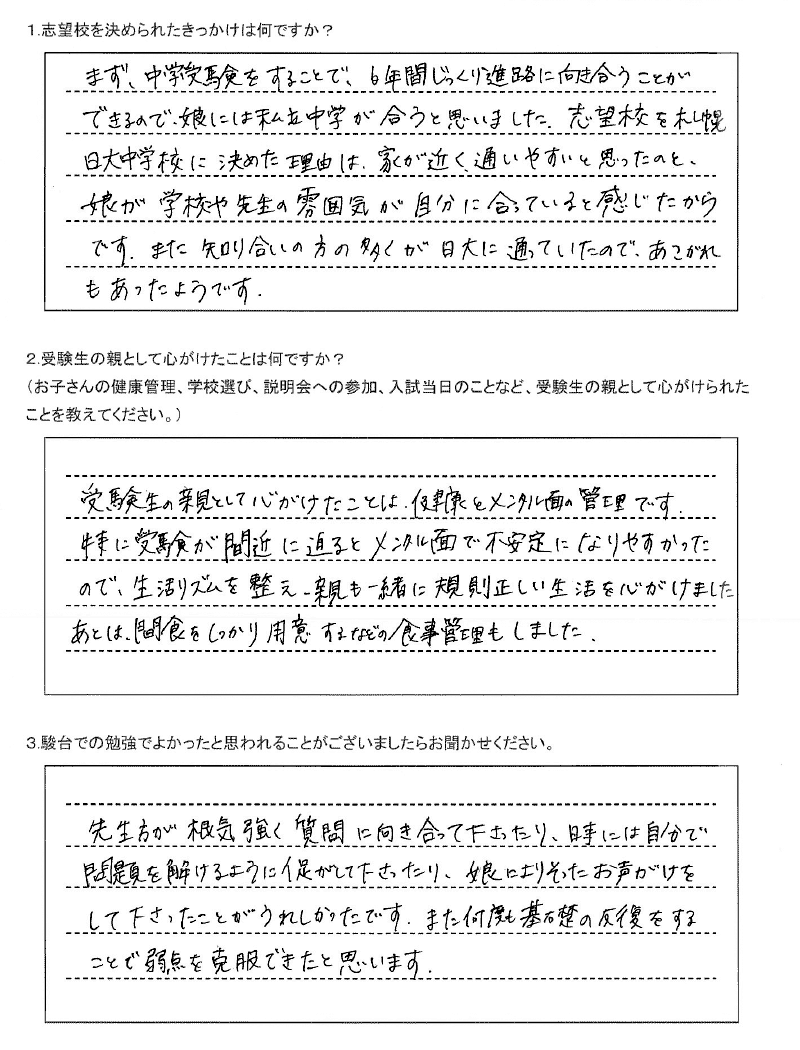 1.志望校を決められたきっかけは何ですか？
まず、中学受験をすることで、6年間じっくり進路に向き合うことが
できるので、娘には私立中学が合うと思いました。志望校を札幌
日大中学校に決めた理由は、家が近く、通いやすいと思ったのと、
娘が学校や先生の雰囲気が自分に合っていると感じたから
です。また知り合いの方の多くが日大に通っていたので、あこがれ
もあったようです。
2.受験生の親として心がけたことは何ですか？
（お子さんの健康管理、学校選び、説明会への参加、入試当日のことなど、受験生の親として心がけられた
ことを教えてください。）
受験生の親として心がけたことは、健康とメンタル面の管理です。
特に受験が間近に迫るとメンタル面で不安定になりやすかった
ので、生活リズムを整え、親も一緒に規則正しい生活を心がけました
あとは、間食をしっかり用意するなどの食事管理もしました。
3.駿台での勉強でよかったと思われることがございましたらお聞かせください。
先生方が根気強く質問に向き合って下さったり、時には自分で
問題を解けるように促がして下さったり、娘によりそったお声がけを
して下さったことがうれしかったです。また何度も基礎の反復をする
ことで弱点を克服できたと思います。